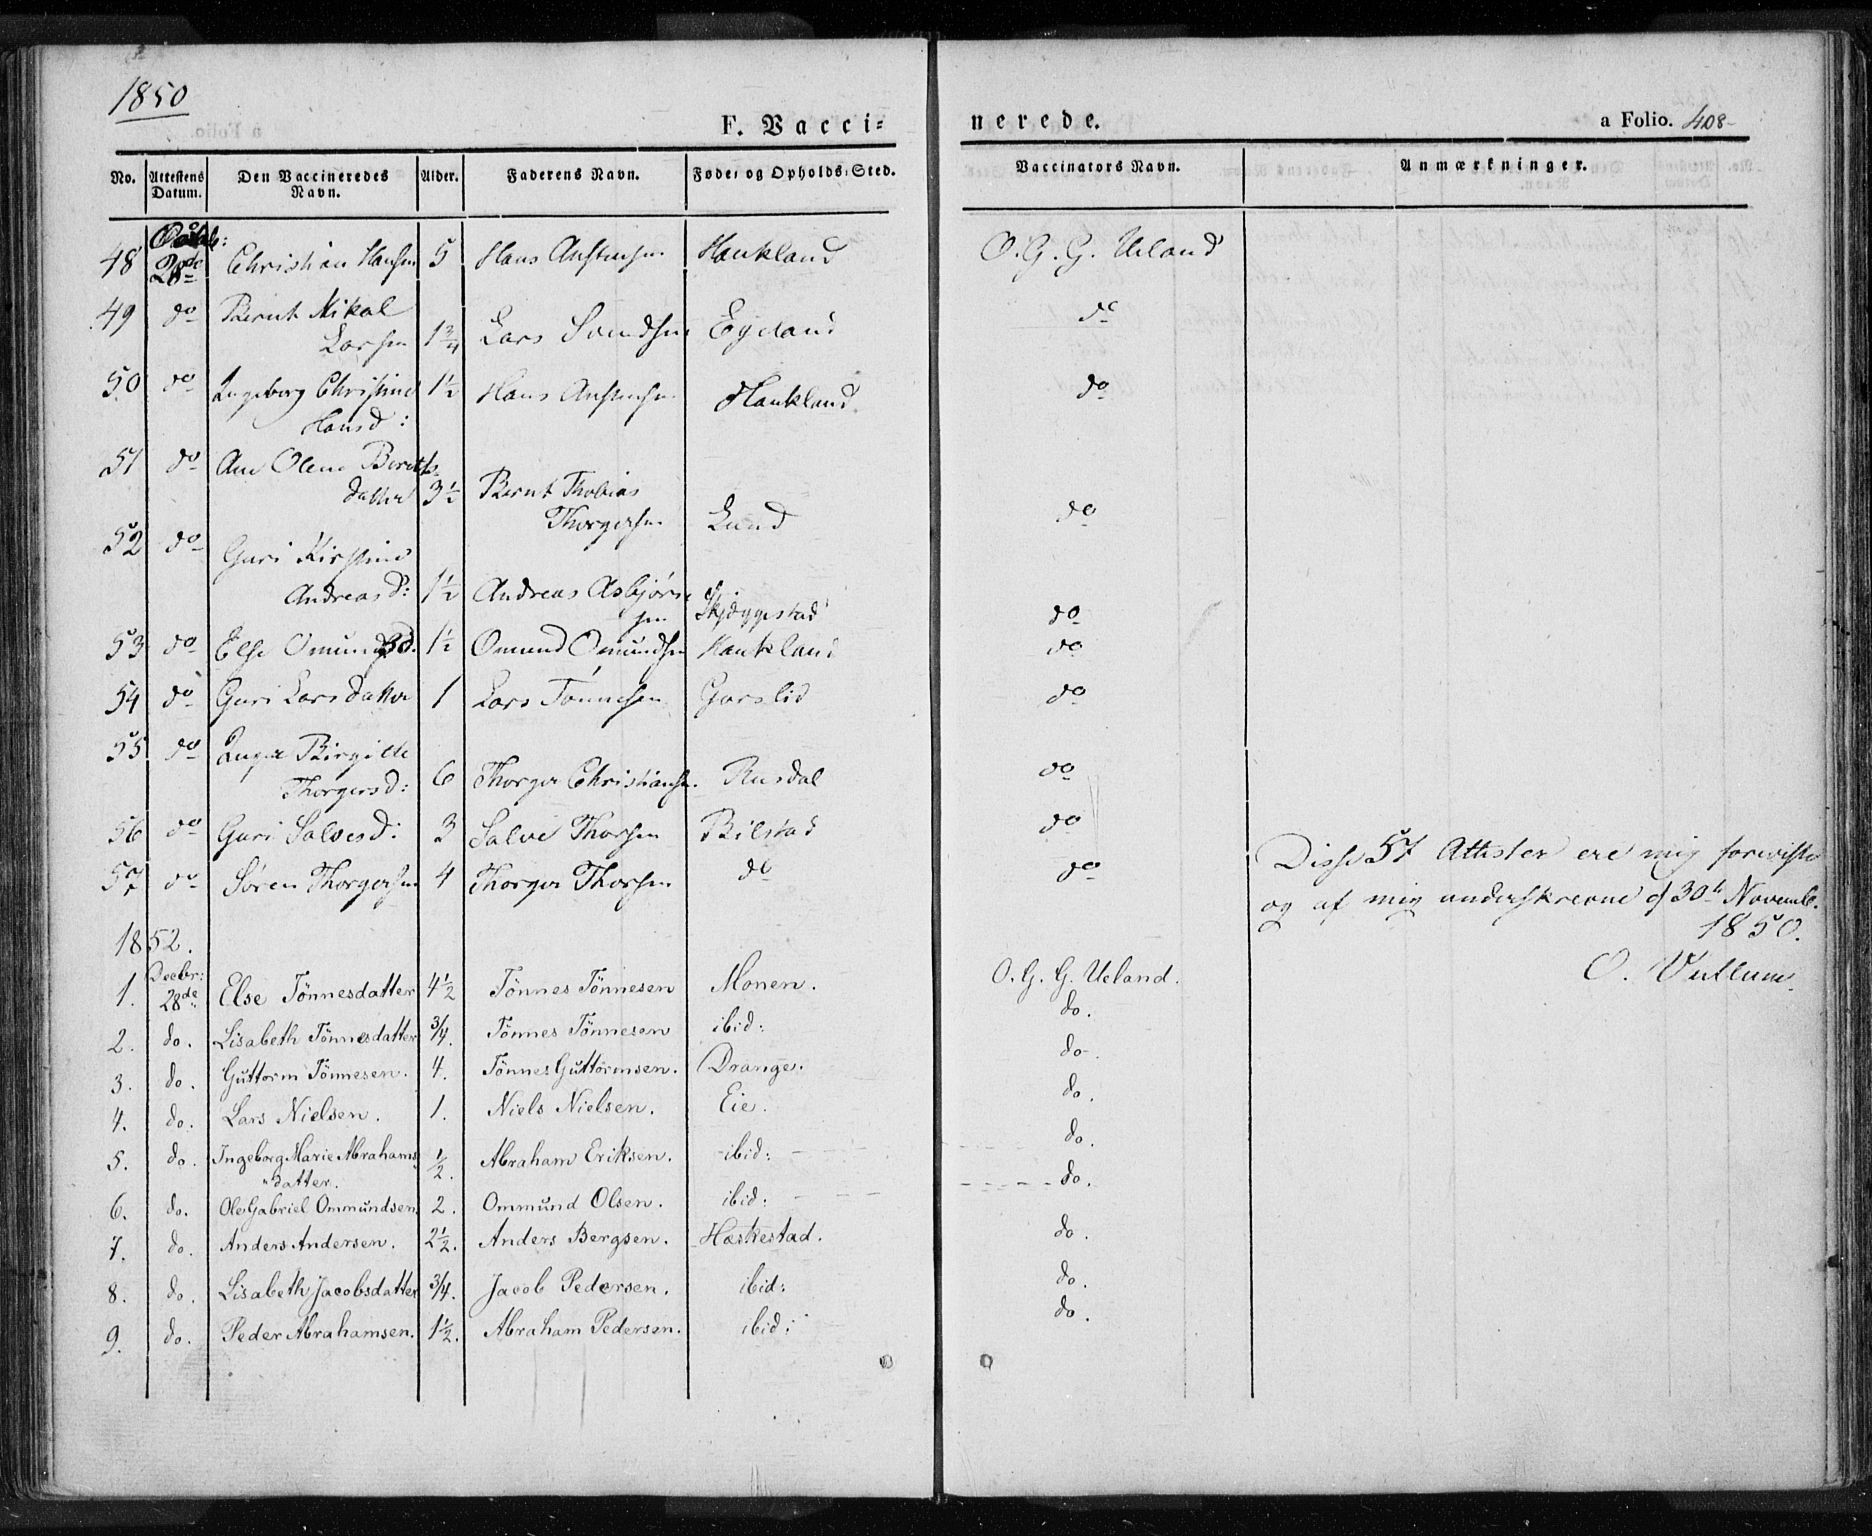 1850
F. Vacci=
nerede.
a Folio. 408
No. Attestens Datum. Den Vaccineredes Navn. Alder. Faderens Navn. Føde= og Opholds=Sted. Vaccinators Navn. Anmærkninger.
48 28de Christian Hansen 5 Hans Anstensen Haukland O. G. G. Ueland
49 do Bernt Mikal
Larsen 1 3/4 Lars Svendsen Egeland do
50 do Ingeborg Christine 1 1/2 Hans Anstensen Haukland do
Hansd:
51 do Ane Olene Bernts
datter 3 1/2 Bernt Thobias
Thorgersen Lund do
52 do Guri Kirstine
Andreasd: 1 1/2 Andreas Asbjørn-
sen Skjæggestad do
53 do Else Omundsd. 1 1/2 Omund Omundsen Haukland do
54 do Guri Larsdatter 1 Lars Tønnesen Gorslid do
55 do Inger Birgitte
Thorgersd: 6 Thorger Christiansen. Rusdal do
56 do Guri Salvesd: 3 Salve Thorsen Bilstad do
57 do Søren Thorgersen 4 Thorger Thorsen do do
Disse 57 Attester ere mig foreviste
og af mig underskrevne d 30t Novemb.
1850.
O. Vullum.
1852.
Decbr:
1. 28de Else Tönnesdatter 4 1/2 Tönnes Tönnesen Monen. O. G. G. Ueland.
2. do. Lisabeth Tönnesdatter 3/4. Tönnes Tönnesen ibid: do.
3. do. Guttorm Tönnesen. 4. Tönnes Guttormsen. Drange. do.
4. do. Lars Nielsen. 1. Niels Nielsen. Eie. do.
5. do. Ingeborg Marie Abrahams= 1/2. Abraham Eriksen. ibid: do.
"datter.
6. do. Ole Gabriel Ommundsen. 2. Ommund Olsen. ibid: do.
7. do. Anders Andersen. 2 1/2. Anders Bergsen. Hæskestad. do.
8. do. Lisabeth Jacobsdatter 3/4. Jacob Pedersen. ibid: do.
9. do. Peder Abrahamsen. 1 1/2. Abraham Pedersen. ibid: do.